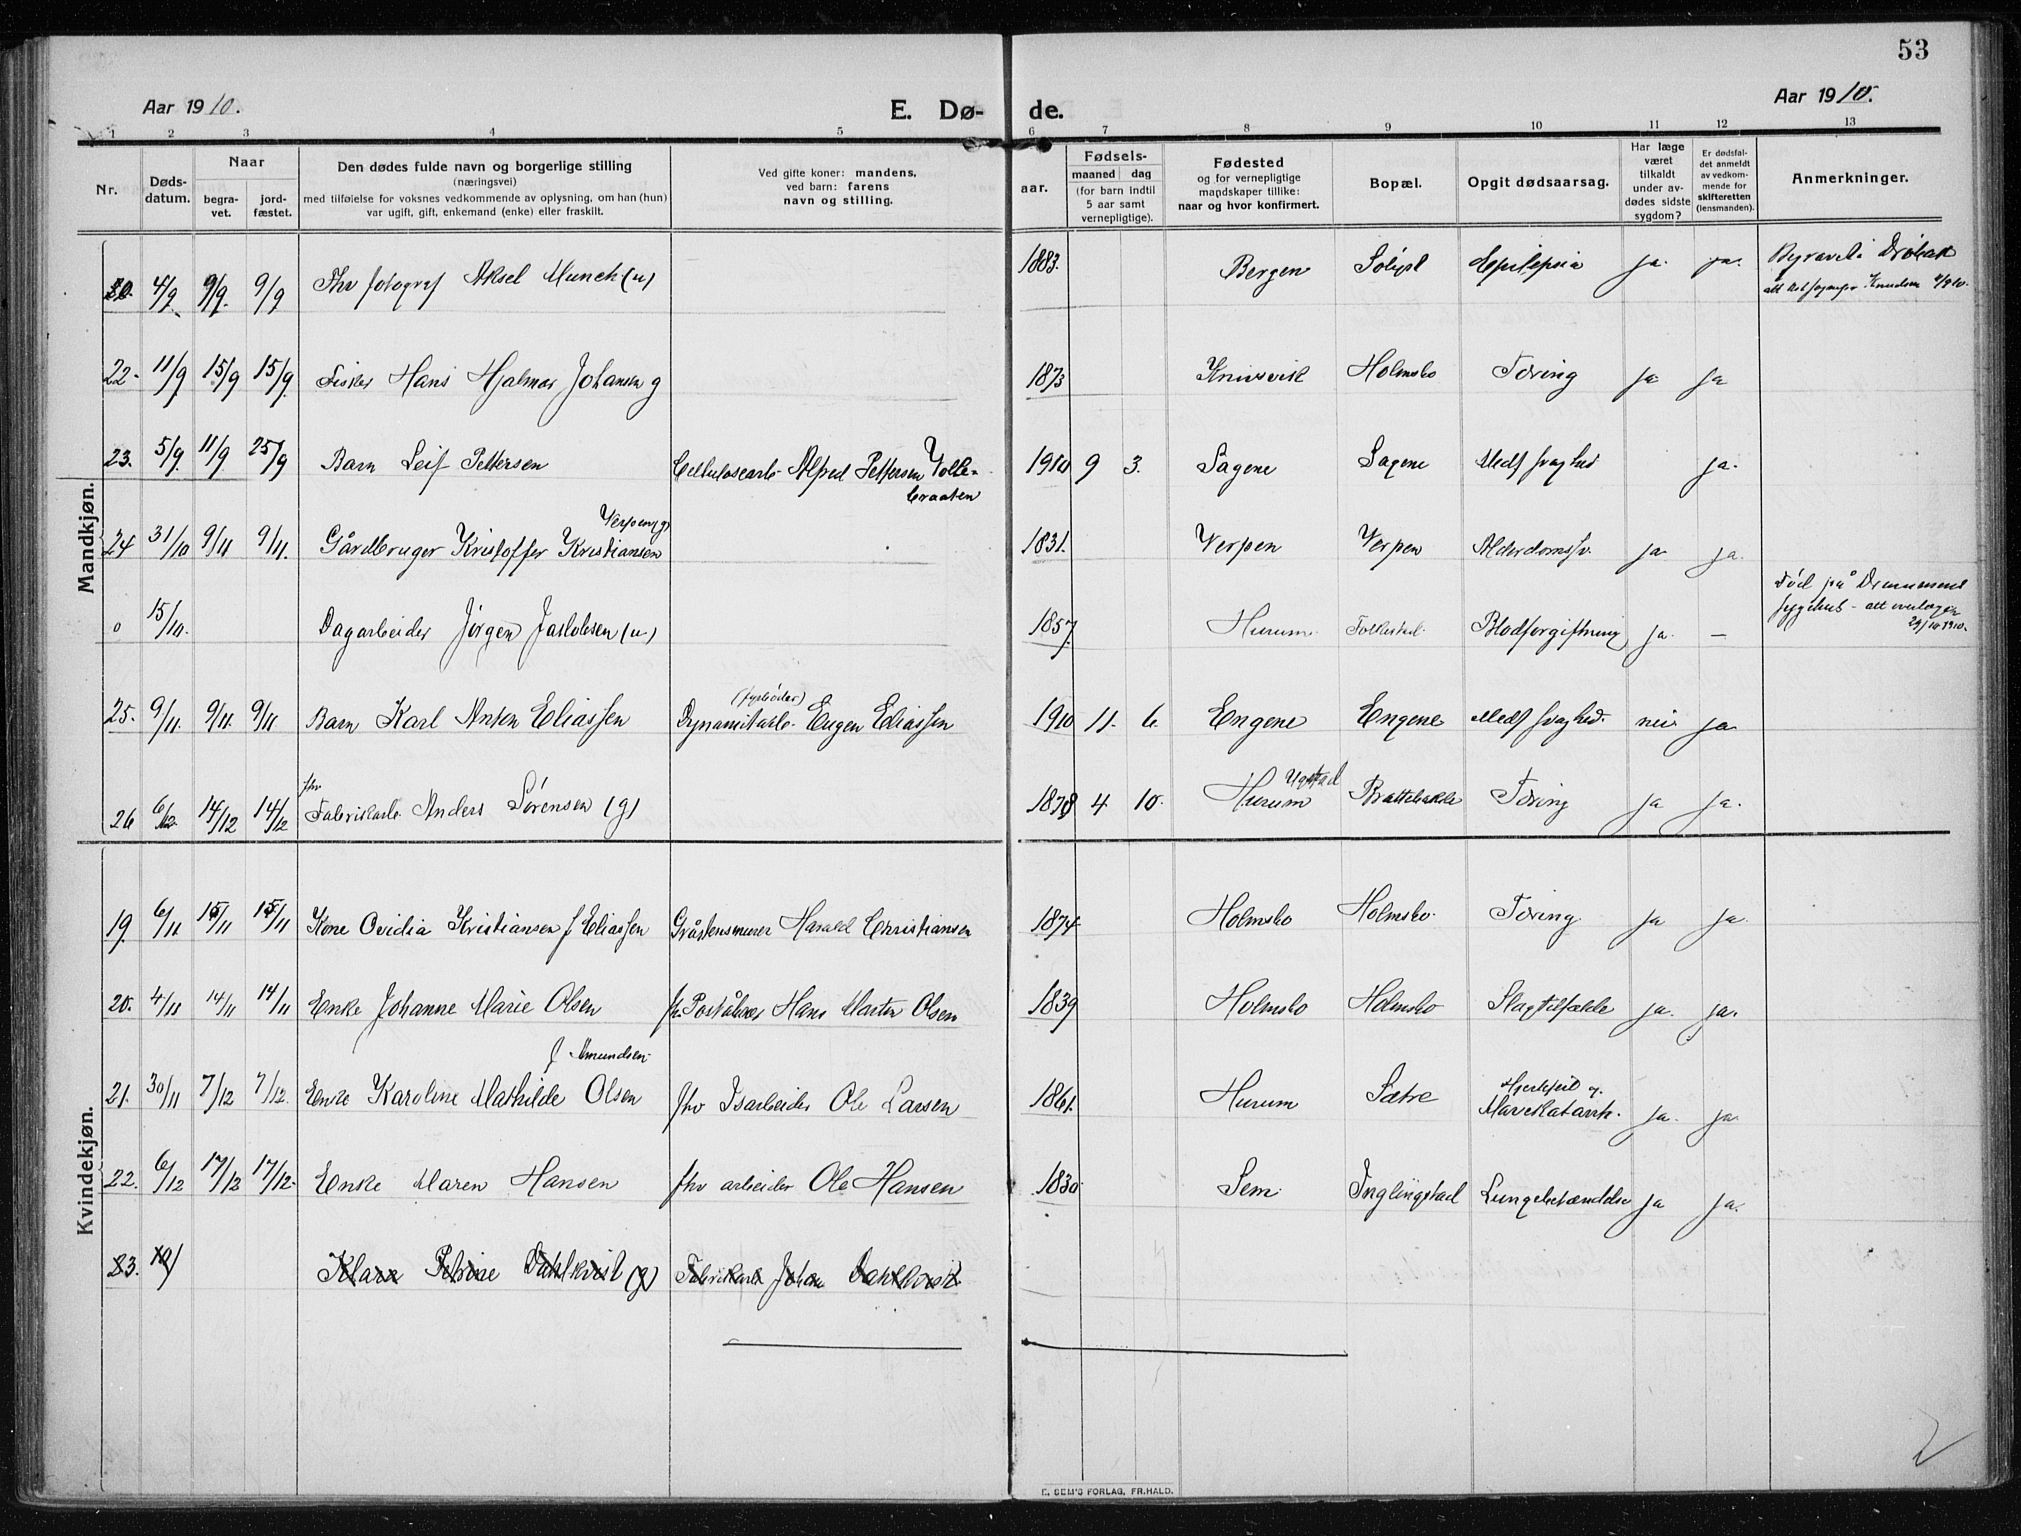 53
Aar 1910.
E. Dø-
de.
Aar 1910.
1 2 3 4 5 6 7 8 9 10 11 12 13
Nr.
Døds-
datum.
Naar
begra-
vet.
jord-
fæstet.
Den dødes fulde navn og borgerlige stilling
(næringsvei)
med tilføielse for voksnes vedkommende av oplysning, om han (hun)
var ugift, gift, enkemand (enke) eller fraskilt.
Ved gifte koner: mandens,
ved barn: farens
navn og stilling.
aar.
Fødsels-
maaned dag
(for barn indtil
5 aar samt
vernepligtige).
Fødested
og for vernepligtige
mandskaper tillike:
naar og hvor konfirmert.
Bopæl.
Opgit dødsaarsag.
Har læge
været
tilkaldt
under av-
dødes sidste
sygdom?
Er dødsfal-
det anmeldt
av vedkom-
mende for
skifteretten
(lensmanden).
Anmerkninger.
Mandkjøn.
4/9 9/9 9/9 Fhv fotograf Aksel Munch (u) 1883. Bergen Epilepsia ja. ja.
22. 11/9 15/9 15/9 Fisker Hans Hjalmar Johansen g 1873 Knivsvik Holmsbo Tæring ja ja
23. 5/9 11/9 25/9 Barn Leif Pettersen Cellulosearb. Alfred Pettersen 1910 9 3. Sagene Sagene Medf svaghed ja.
braaten
Verpen (g)
24 31/10 9/11 9/11. Gårdbruger Kristoffer Kristiansen 1831. Verpen Verpen Alderdomssv. ja ja.
Død på Drammens
sygehus - att overlægen
29/10 1910.
0 15/10. Dagarbeider Jørgen Jakobsen (u) 1857. Hurum Folkestad. Blodforgiftning ja. —
(fyrbøder)
25. 9/11 9/11. 9/11 Barn Karl Anton Eliassen Dynamitarb. Eugen Eliassen 1910 11. 6. Engene Engene Medf svaghed. nei ja
fhv
26 6/12 14/12 14/12 Fabrikarb. Anders Sørensen (g) 1878 4 10. Hurum Brattebakke Tæring ja ja.
Kvindekjøn.
19. 6/11 15/11 15/11 Kone Ovidia Kristiansen f Eliassen Gråstensmurer Harald Christiansen 1874 Holmsbo Holmsbo. Tæring ja ja.
20. 4/11 14/11 14/11 Enke Johanne Marie Olsen fh. Poståbner Hans Martin Olsen 1839 Holmsbo Holmsbo Slagtilfælde ja. ja.
f Amundsen
21. 30/11 7/12 7/12. Enke Karoline Mathilde Olsen fhv Isarbeider Ole Larsen 1861. Hurum Sætre Hjertfeil og
Mavekatarrh. ja. ja.
22. 6/12 17/12 17/12. Enke Maren Hansen fhv arbeider Ole Hansen 1830 Sem Inglingstad Lungebetændelse ja ja.
23. Klara Petrine Dahlkvist (g) Fabrikarb Johan Dahlkvist
E. SEM'S FORLAG, FR.HALD.